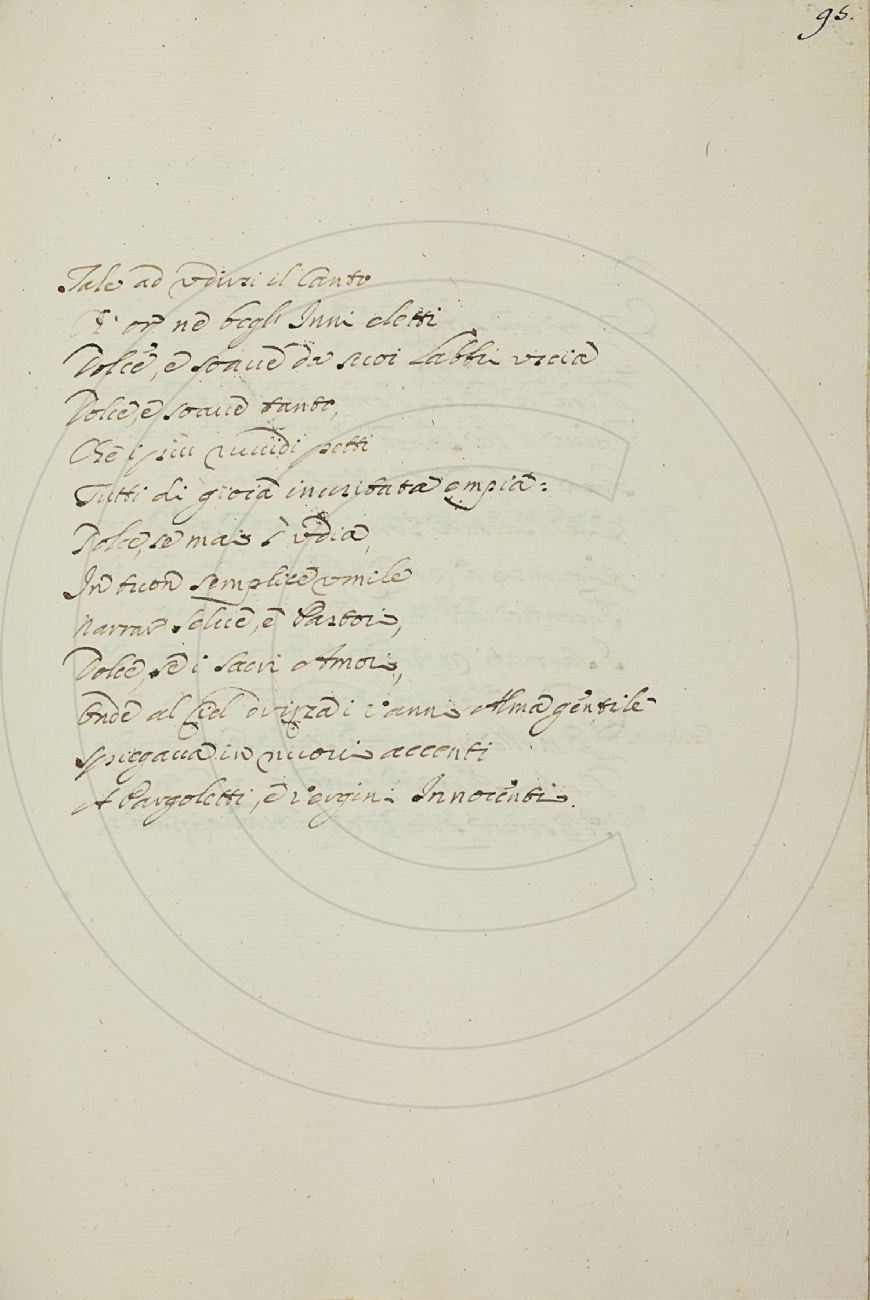 95.
Tale ad udirsi il Canto
or ne begl' Inni eletti
Dolce, e soave da suoi Labbri uscia
Dolce, e soave tanto,
Che i più ruvidi petti
Tutti di gioia inusitata empia:
Dolce, se mai s' udia,
In suon semplice umile
Narrar Selve, e Pastori,
Dolce, se i Sacri Amori,
Onde al Ciel drizza i vanni Alma gentile
Spiegava in nuovi accenti
A Pargoletti, e Vergini Innocenti.